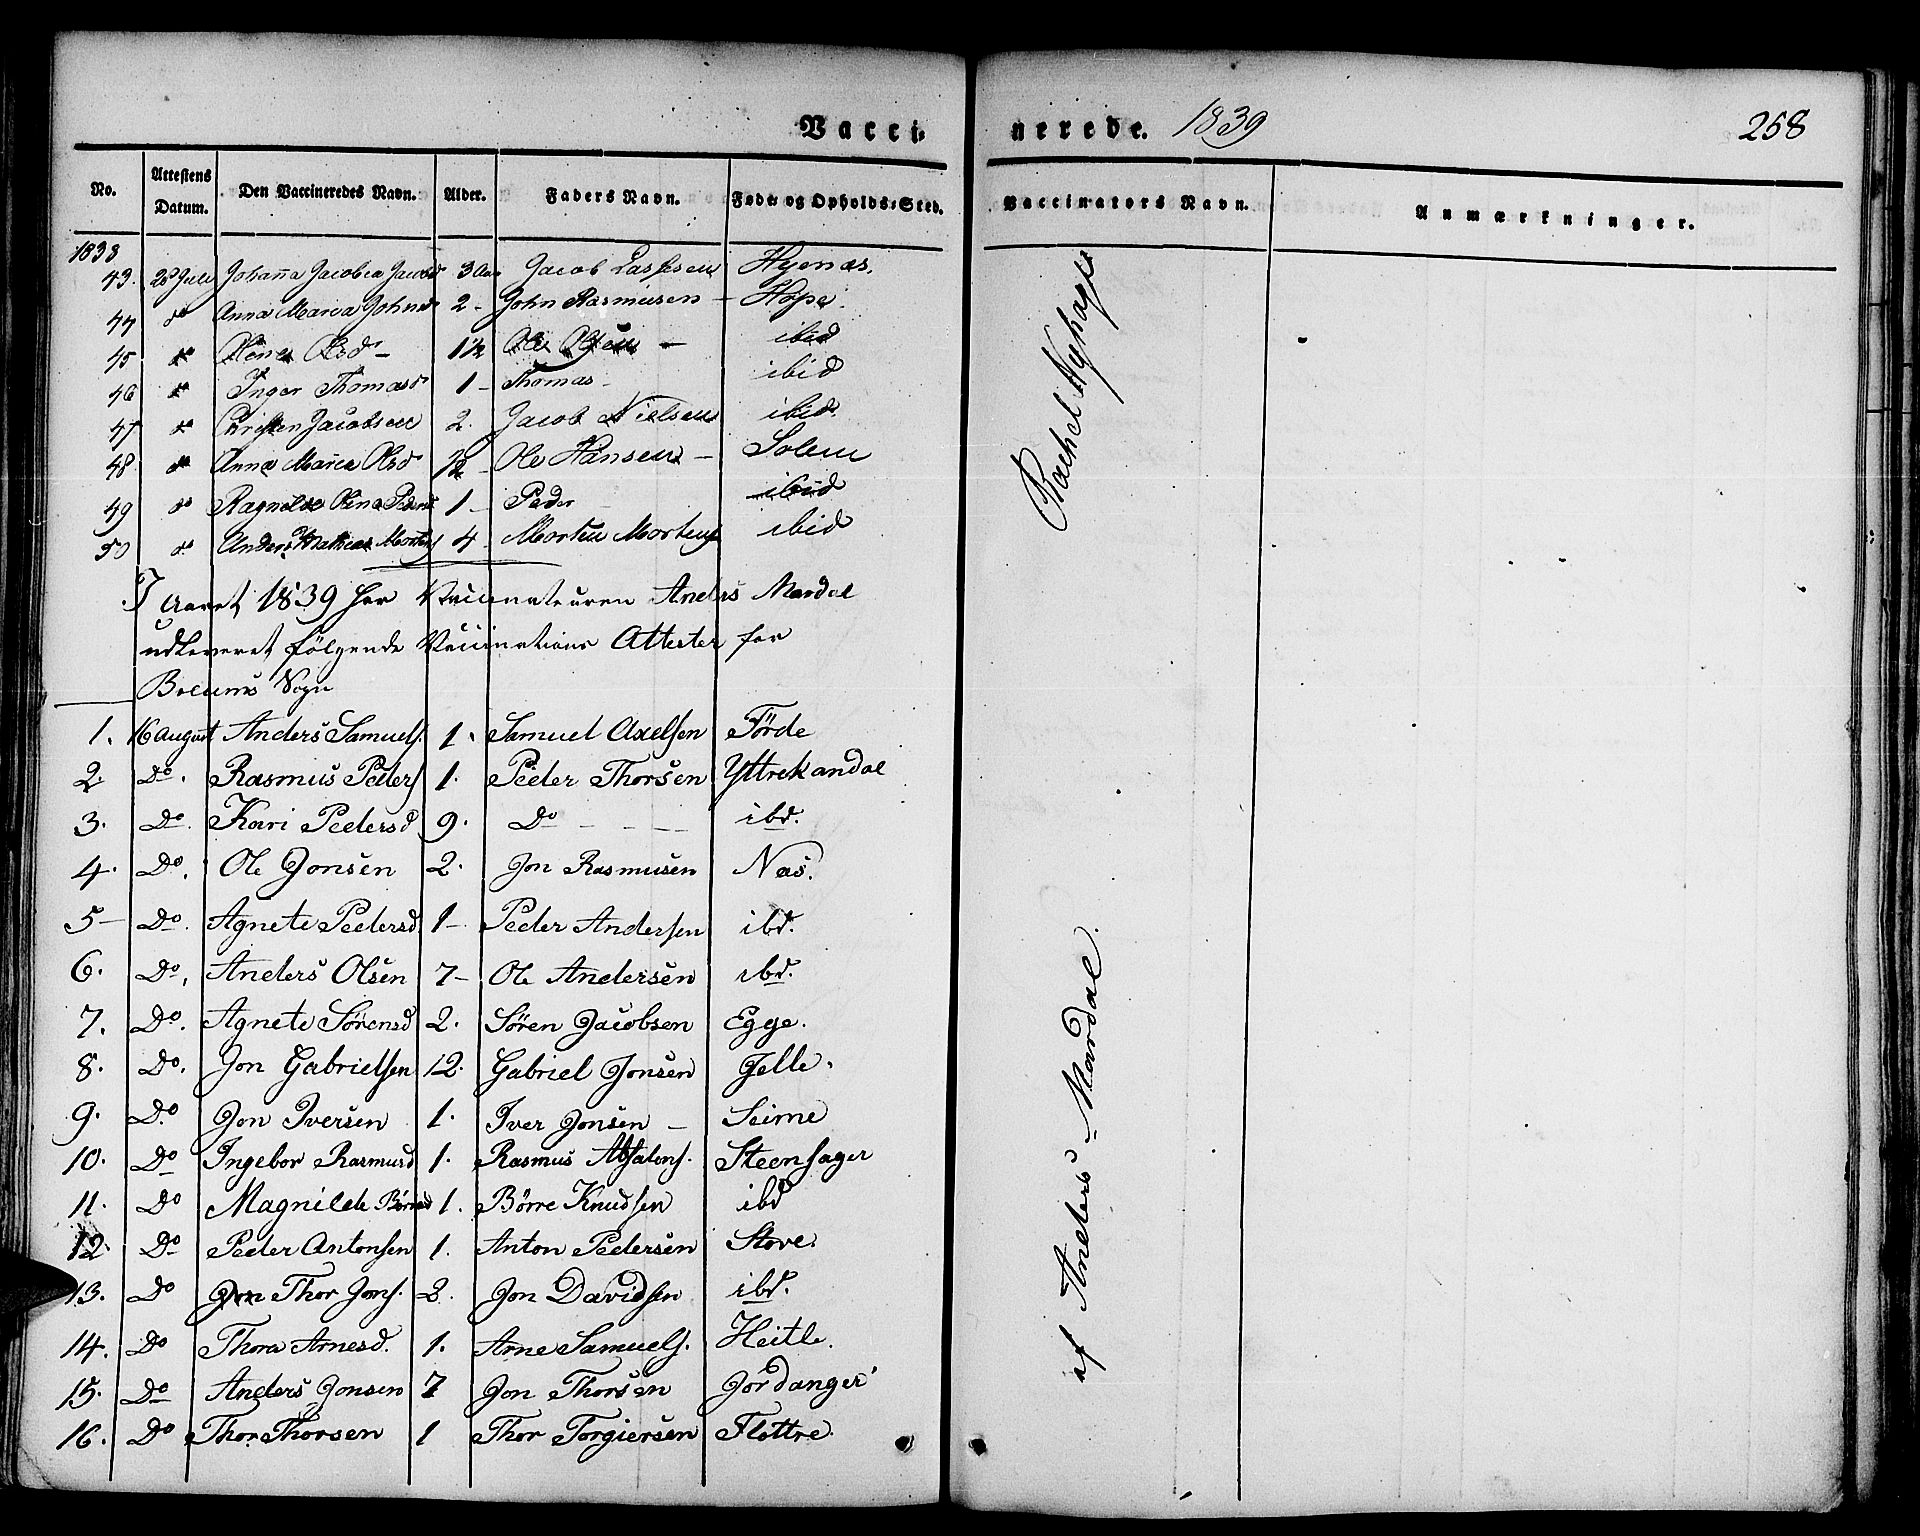 Vacci-nerede. 1839 258
No. Attestens Datum. Den Vaccineredes Navn. Alder. Faders Navn. Føde- og Opholds-Sted. Vaccinators Navn. Anmærkninger.
1838
43. 28 Juli Johanna Jacobea Jacobsd 3 Aar Jacob Lassesen Hyenæs.
44 do Anna Maria Johnsd 2 - John Rasmusen - Hope.
45 do Olsd - 1½ Ole Olsen - ibid
46 do Inger Thomasd 1 - Thomas - ibid
47 do Christen Jacobsen 2. Jacob Nielsen ibid.
48 do Anna Maria Olsd ½ - Ole Hansen - Solem
49 do Ragnilde Olina Pedersd 1 - Peder - ibid
50 do Anders Mathias Mortens 4 - Morten Mortens ibid
Rachel Nyhage
I Aaret 1839 har Vaccinateuren Anders Mardal
udleveret følgende Vaccinations Attester for
Breums Sogn
1. 16 August Anders Samuels. 1. Samuel Axelsen Förde
2. Do. Rasmus Peders 1. Peder Thorsen Yttrekandal
3. Do. Kari Pedersd 9. Do - - - - ibd.
4. Do. Ole Jonsen 2. Jon Rasmusen Nas.
5 - Do. Agnete Pedersd 1 - Peder Andersen ibd.
6. Do. Anders Olsen 7 - Ole Andersen ibd.
7. Do. Agnete Sørensd 2. Søren Jacobsen Egge.
8. Do. Jon Gabrielsen 12. Gabriel Jonsen Felle.
9. Do. Jon Iversen 1. Iver Jonsen - Seime
10. Do Ingebor Rasmusd 1. Rasmus Absalons. Steensager
11. Do Magnilde Børresd 1. Børre Knudsen ibd
12. Do Peder Antonsen 1. Anton Pedersen Stove.
13. Do Jon Thor Jons. 2. Jon Davidsen ibd.
14. Do Thora Arnesd. 1. Arne Samuels. Heitle.
15. Do Anders Jonsen 7 Jon Thorsen Jordanger
16. Do Thor Thorsen 1 Thor Torgiersen Flottre.
af Anders Mardal.